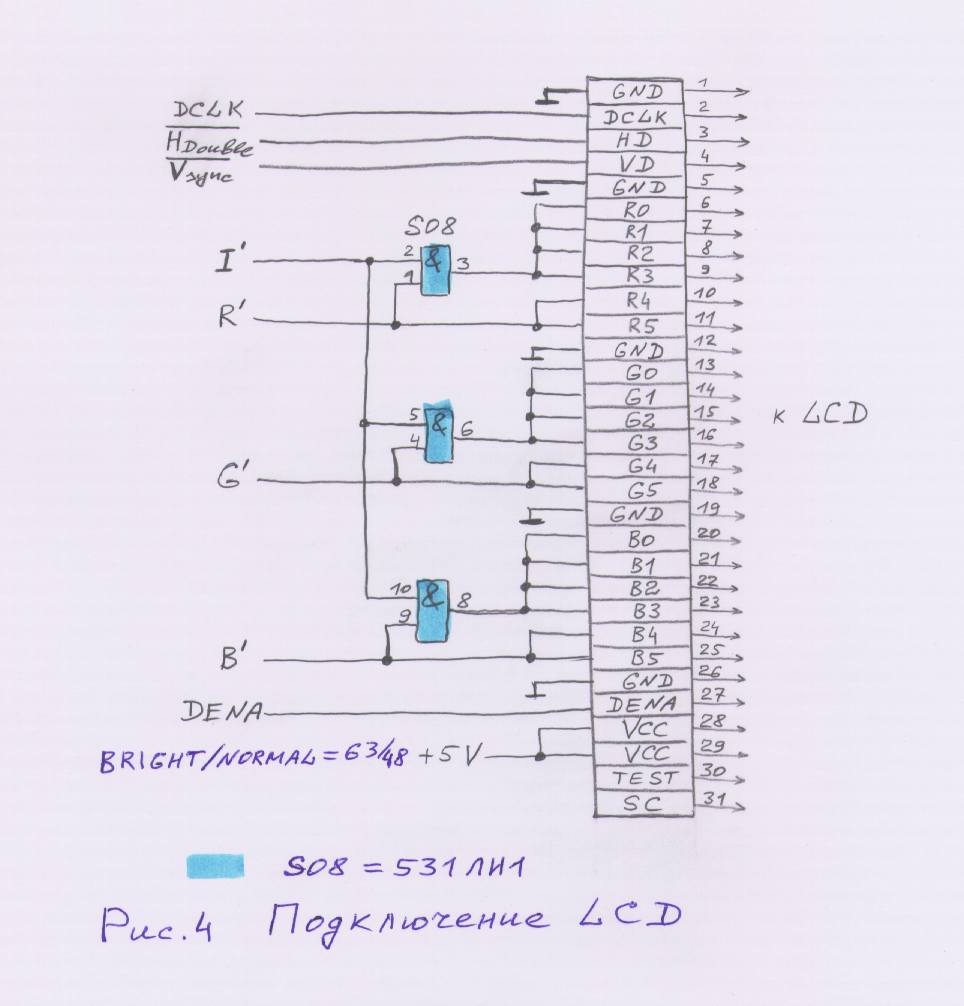 GND 1
DCLK DCLK 2
HDouble HD 3
Vsync VD 4
GND 5
R0 6
S08 R1 7
I' 2 & 3 R2 8
1 R3 9
R4 10
R' R5 11
GND 12
G0 13
G1 14
5 & 6 G2 15 к LCD
4 G3 16
G4 17
G' G5 18
GND 19
B0 20
B1 21
10 & 8 B2 22
9 B3 23
B4 24
B' B5 25
GND 26
DENA DENA 27
VCC 28
BRIGHT/NORMAL=63/48 +5V VCC 29
TEST 30
SC 31
S08 = 531ЛИ1
Рис.4 Подключение LCD